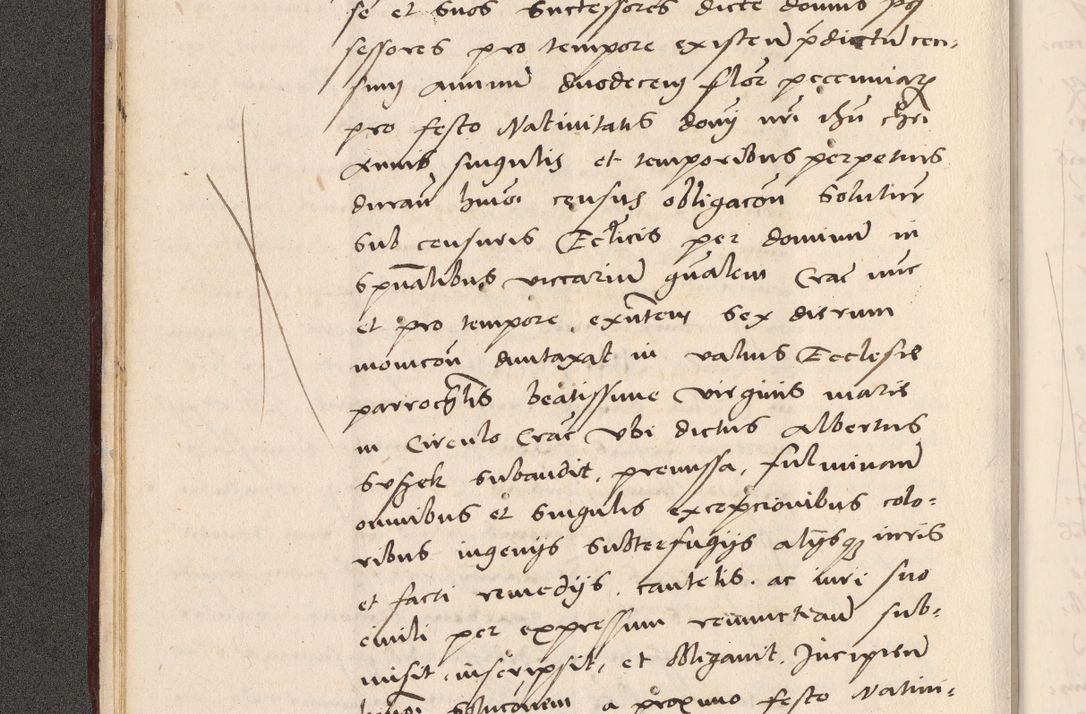 se et suos successores dicte domus pos
sessores pro tempore existen pdictu cen-
sum annuu duodecem flor pecuniar
pro festo Nativitatis domi nri ihu chri
Annis singulis et temporibus perpetuis
duran huiusmoi census obligacon solutur
sub censuris Ecclicis per dominum in
spualibus viccariu gnalem Crac nuc
et pro tempore existen sex dierum
monicon duntaxat in valuis Ecclesie
parrochlis beatissime virginis marie
in Circulo Crac vbi dictus Albertus
subaudit, premissa, fulminan
omnibus et singulis excepcionibus colo-
ribus ingenijs subterfugijs alijsq iuris
et facti remedijs, cautelis, ac iuri suo
civili per expressum renuncean sub-
misit, inscripsit, et obligavit, Incipien
solucionem a proximo festo Nativi-